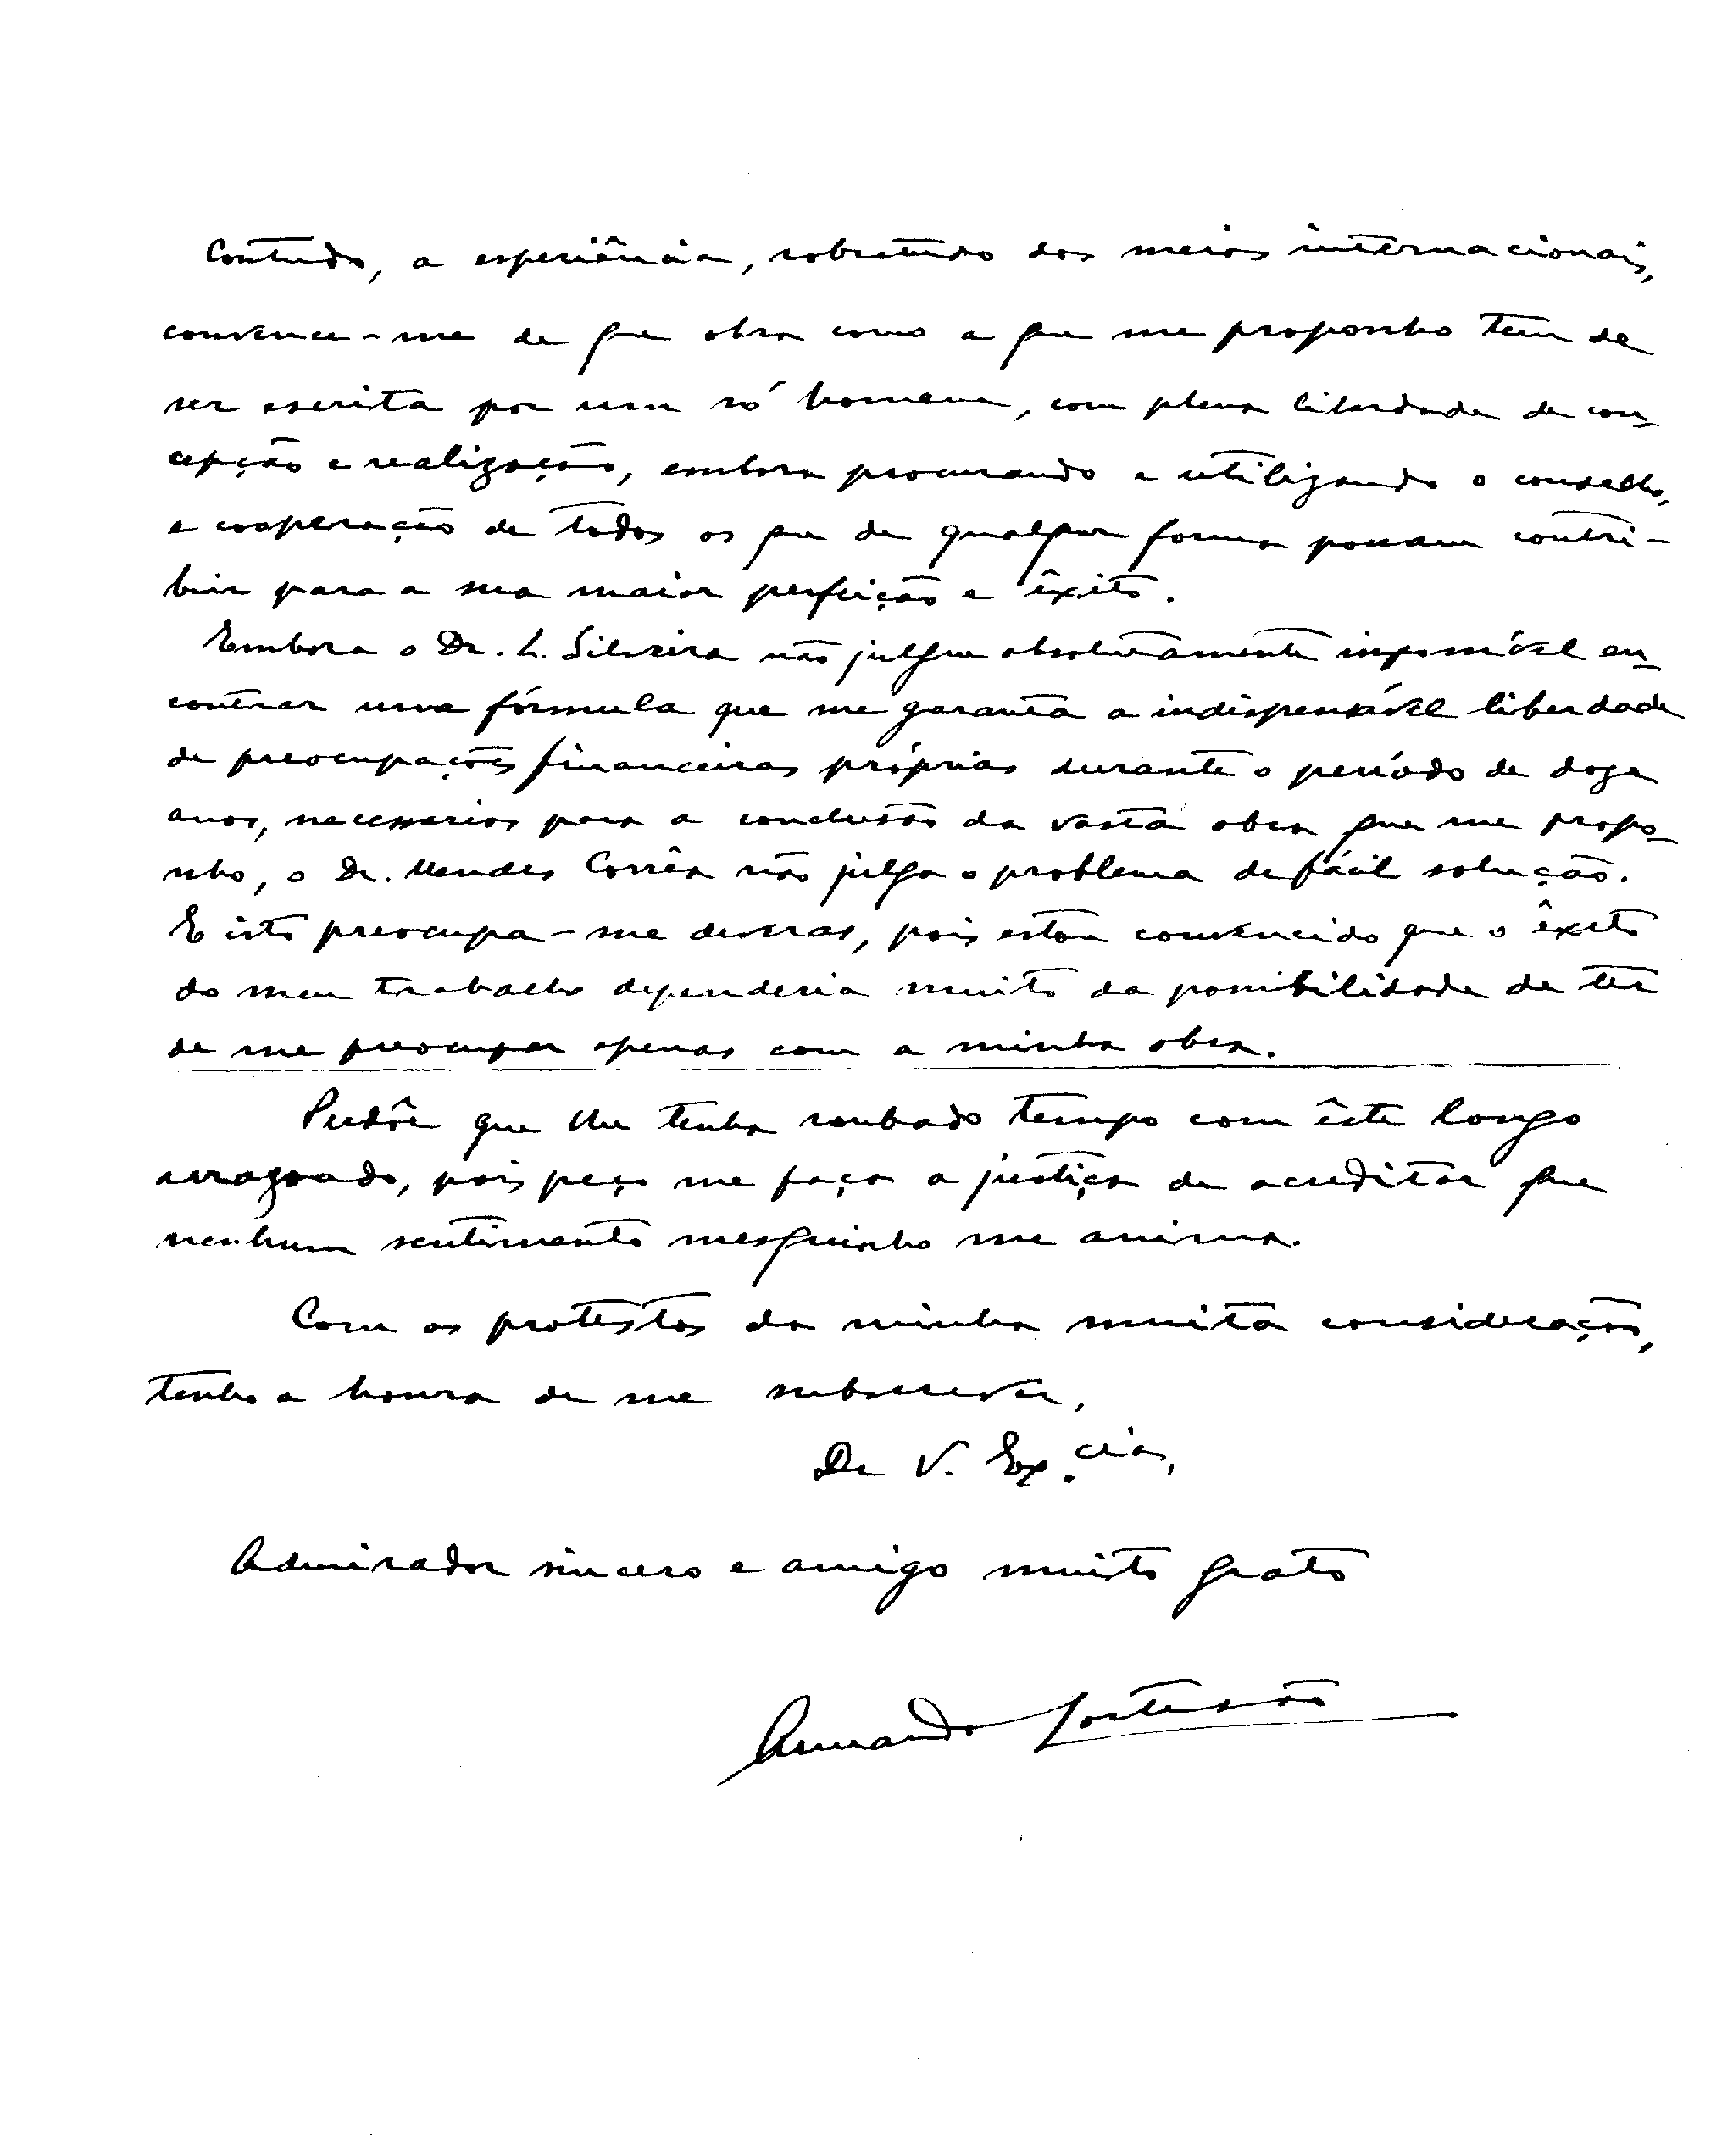 Contudo, a esperiência, sobretudo dos meios internacionais,
convence-me de que obra como a que me proponho tem de
ser escrita por um só homem, com plena liberdade de con-
cepção e realização, embora procurando e utilizando o conselho,
e cooperação de todos os que de qualquer forma possam contri-
buir para a sua maior perfeição e êxito.
Embora o Dr. L. Silveira não julgue absolutamente impossível en-
contrar uma fórmula que me garanta a indispensável liberdade
de preocupações financeiras próprias durante o período de doze
anos, necessarios para a conclusão da vasta obra que me propo-
nho, o Dr. Mendes Corrêa não julga o problema de fácil solução.
E isto preocupa-me deveras, pois estou convencido que o êxito
do meu trabalho dependeria muito da possibilidade de ter
de me preocupar apenas com a minha obra.
Perdôe que lhe tenha roubado tempo com êste longo
arrazoado, pois peço me faça a justiça de acreditar que
nenhum sentimento mesquinho me anima.
Com os protestos da minha muita consideração,
tenho a honra de me subscrever,
De V. Exp.cias,
Admirador sincero e amigo muito grato
Armando Cortesão